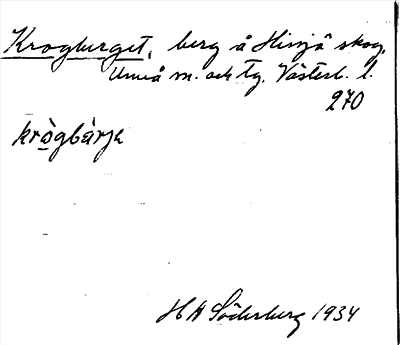 Krogberget, berg å Hissjö skog,
Umeå sn. och tg. Västerb. l.
270
krògbàrjə
H A Söderberg 1934